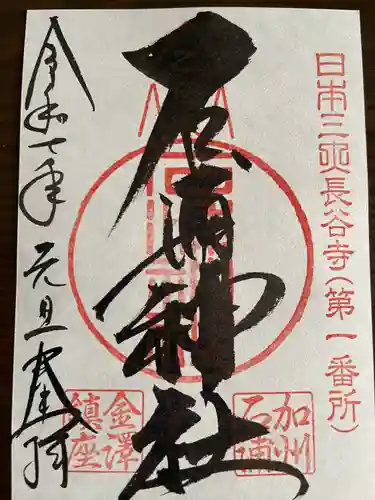 日本三大長谷寺(第一番所)
石浦神社
加州
石浦
金澤
鎮座
令和七年 元旦 奉拝